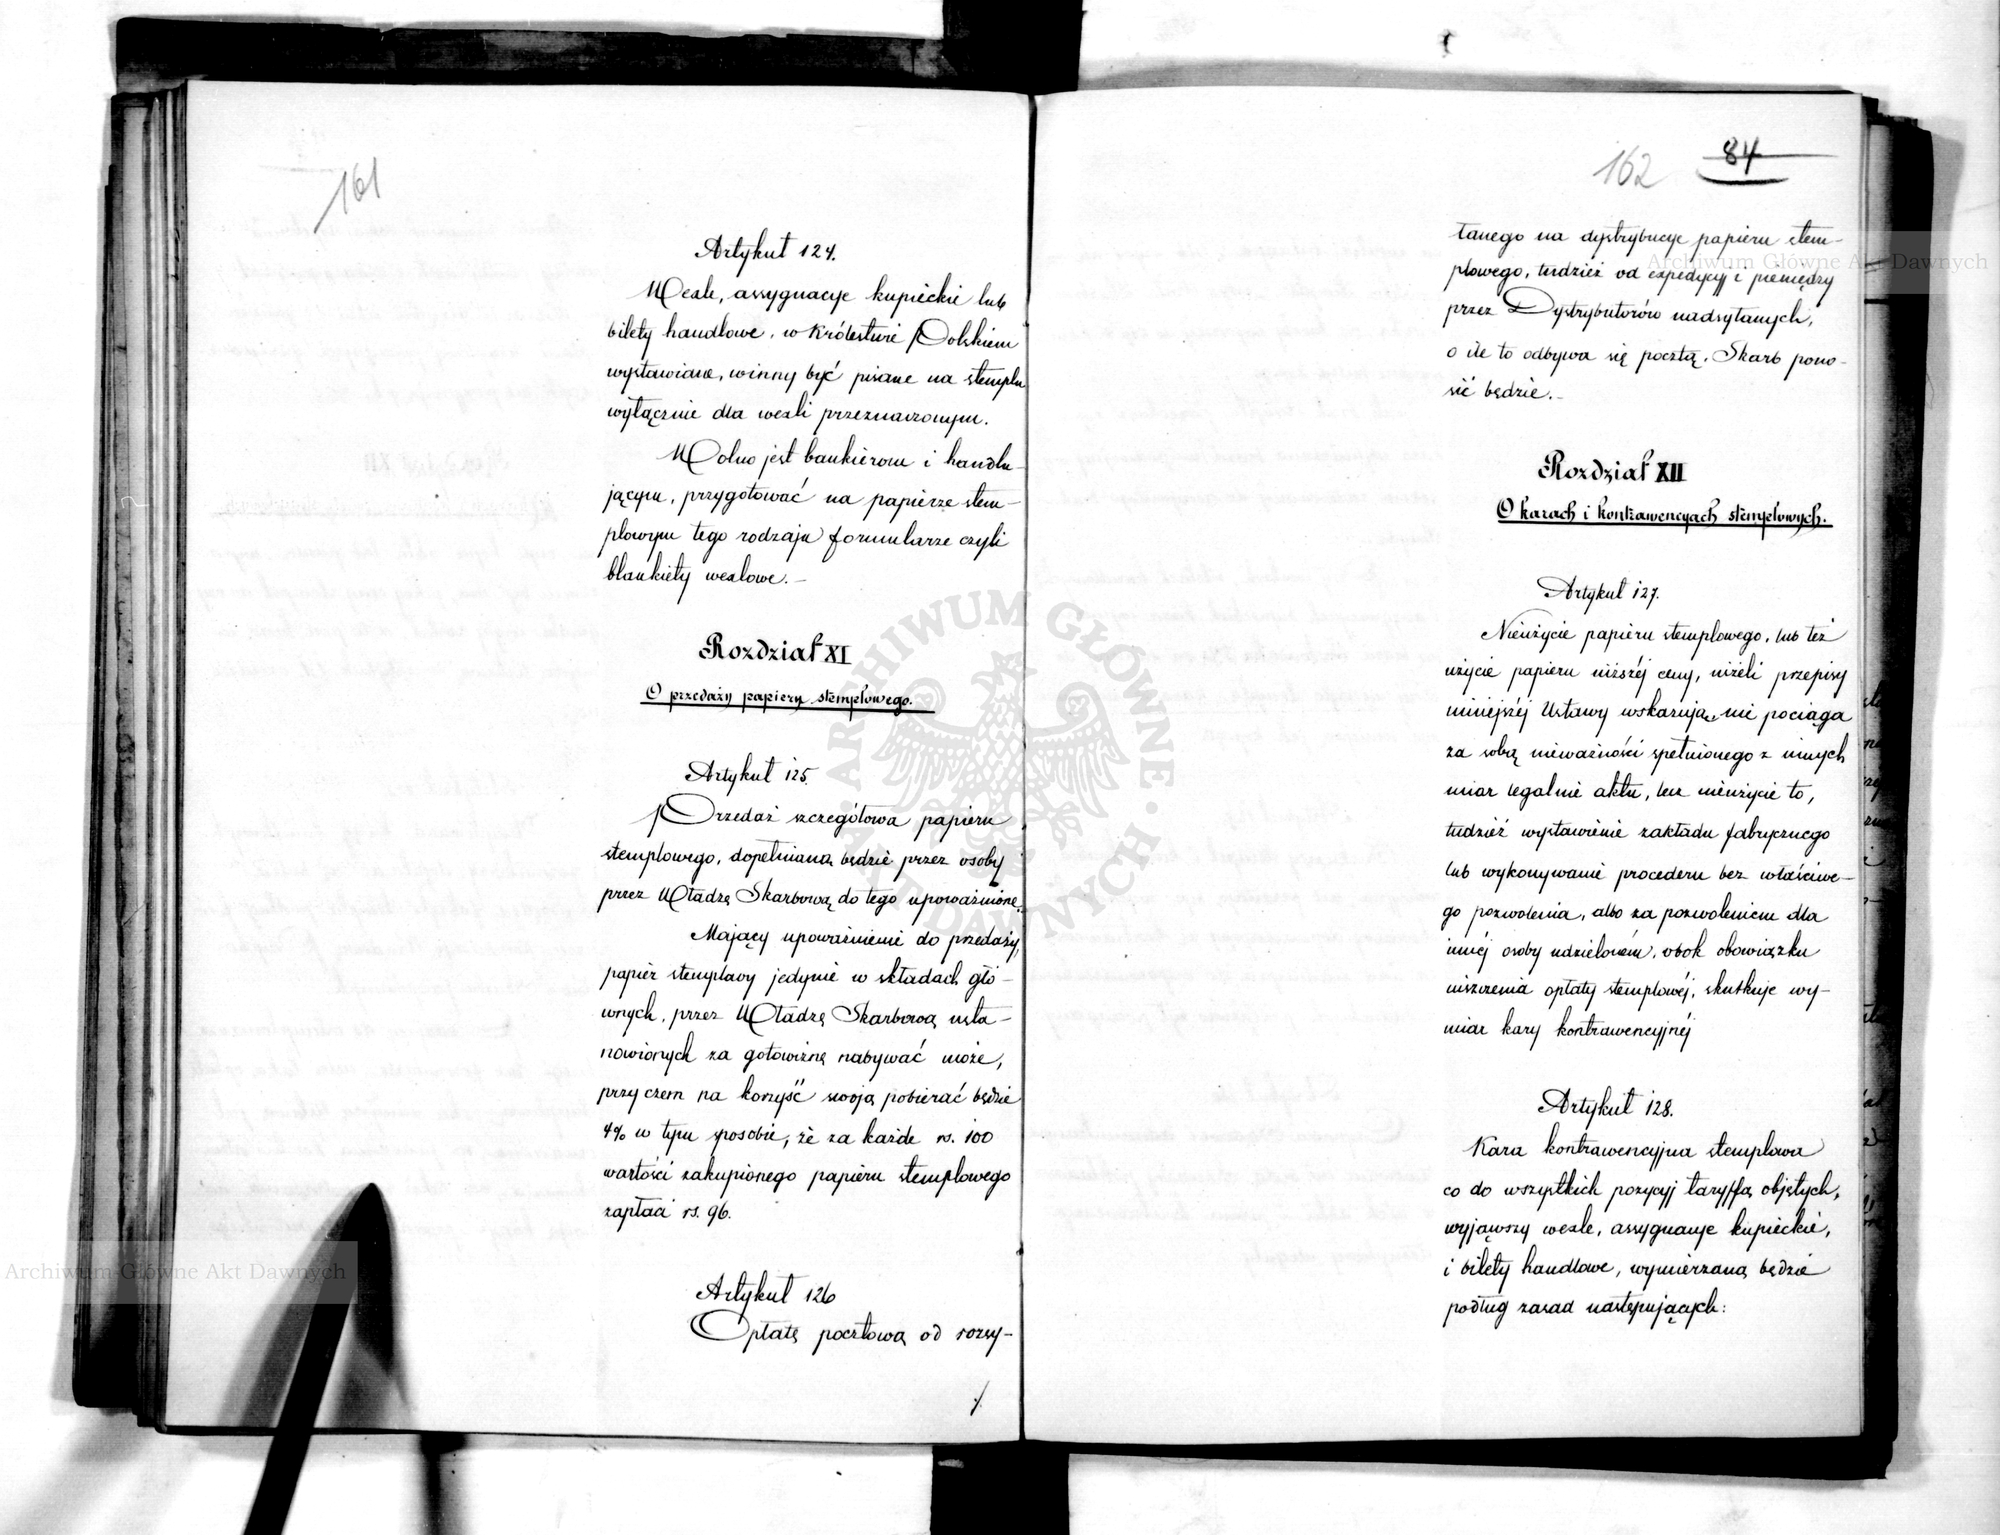 161
Artykuł 124.
Wexle, assygnacye kupieckie lub
bilety handlowe, w Królestwie Polskiem
wystawiane, winny być pisane na stemplu
wyłącznie dla wexli przeznaczonym.
Wolno jest bankierom i handlu-
jącym, przygotować na papierze stem-
plowym tego rodzaju formularze czyli
blankiety wexlowe.–
Rozdział XI
O przedaży papieru stemplowego.
Artykuł 125.
Przedaż szczegółowa papieru
stemplowego, dopełnianą będzie przez osoby
przez Władzę Skarbową do tego upoważnione.
Mający upoważnienie do przedaży,
papier stemplowy jedynie w składach głó-
wnych, przez Władzę Skarbową usta-
nowionych za gotowiznę nabywać może,
przyczem na korzyść swoją pobierać będzie
4% w tym sposobie, że za każde rs. 100
wartości zakupionego papieru stemplowego
zapłaci rs. 96.
Artykuł 126
Opłatę pocztową od rozsy-
./.
162 84
łanego na dystrybucye papieru stem-
plowego, tudzież od expedycyj i pieniędzy
przez Dystrybutorów nadsyłanych,
o ile to odbywa się pocztą, Skarb pono-
sić będzie.–
Rozdział XII
O karach i kontrawencyach stemplowych.
Artykuł 127.
Nieużycie papieru stemplowego, lub też
użycie papieru niższéj ceny, niżeli przepisy
niniejszéj Ustawy wskazują, nie pociąga
za sobą nieważności spełnionego z innych
miar legalnie aktu, lecz nieużycie to,
tudzież wystawienie zakładu fabrycznego
lub wykonywanie procederu bez właściwe-
go pozwolenia, albo za pozwoleniem dla
innéj osoby udzielonem, obok obowiązku
uiszczenia opłaty stemplowéj, skutkuje wy-
miar kary kontrawencyjnéj
Artykuł 128.
Kara kontrawencyjna stemplowa
co do wszystkich pozycyj taryffą objętych,
wyjąwszy wexle, assygnacye kupieckie,
i bilety handlowe, wymierzaną będzie
podług zasad następujących:
Archiwum Główne Akt Dawnych
Archiwum Główne Akt Dawnych
ARCHIWUM GŁÓWNE AKT DAWNYCH